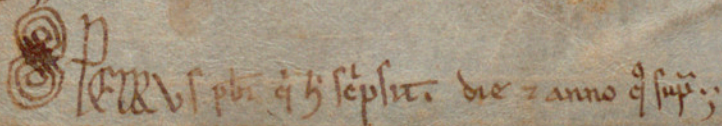 PETRUS pbr̄ q̄ h̄ sc̄psit. die ⁊ anno q̊ sup̄.